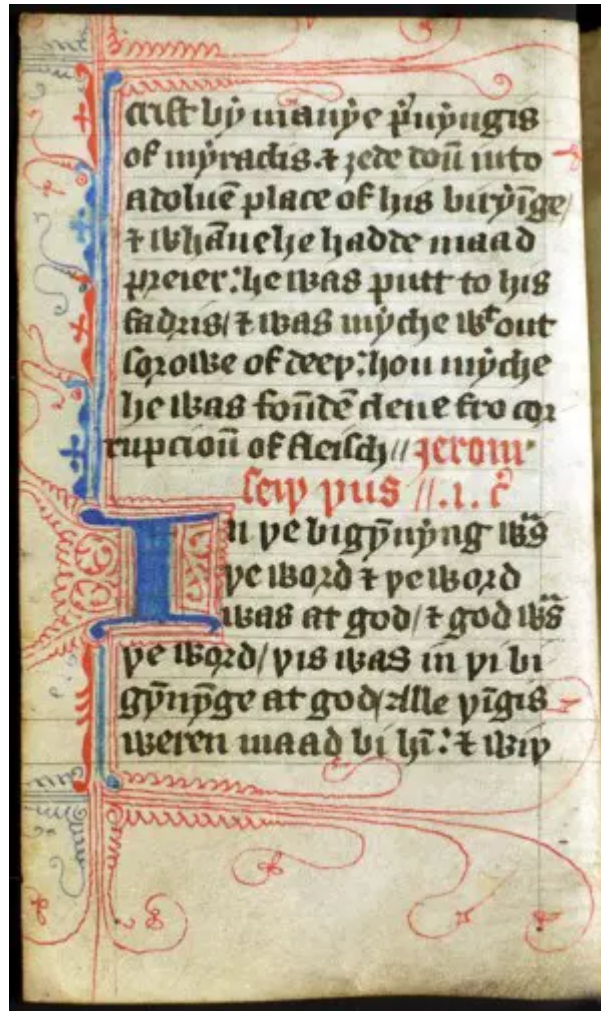 crist by manye p̉uyngis
of myraclis. ⁊ ȝede doū into
a doluē place of his biryīge/
⁊ whāne he hadde maad
preier: he was putt to his
fadris/ ⁊ was myche wᵗout
sorowe of deeþ: hou myche
he was foūdē clene fro cor
rupcioū of fleisch // Jerom
seiþ þus //.1. c̉
In þe bigȳnyng wᵃs
þe word ⁊ þe word
was at god/ ⁊ god wᵃs
þe word/ þis was in þi bi
gȳnȳge at god/ Alle þīgis
weren maad bi hī: ⁊ wiþ